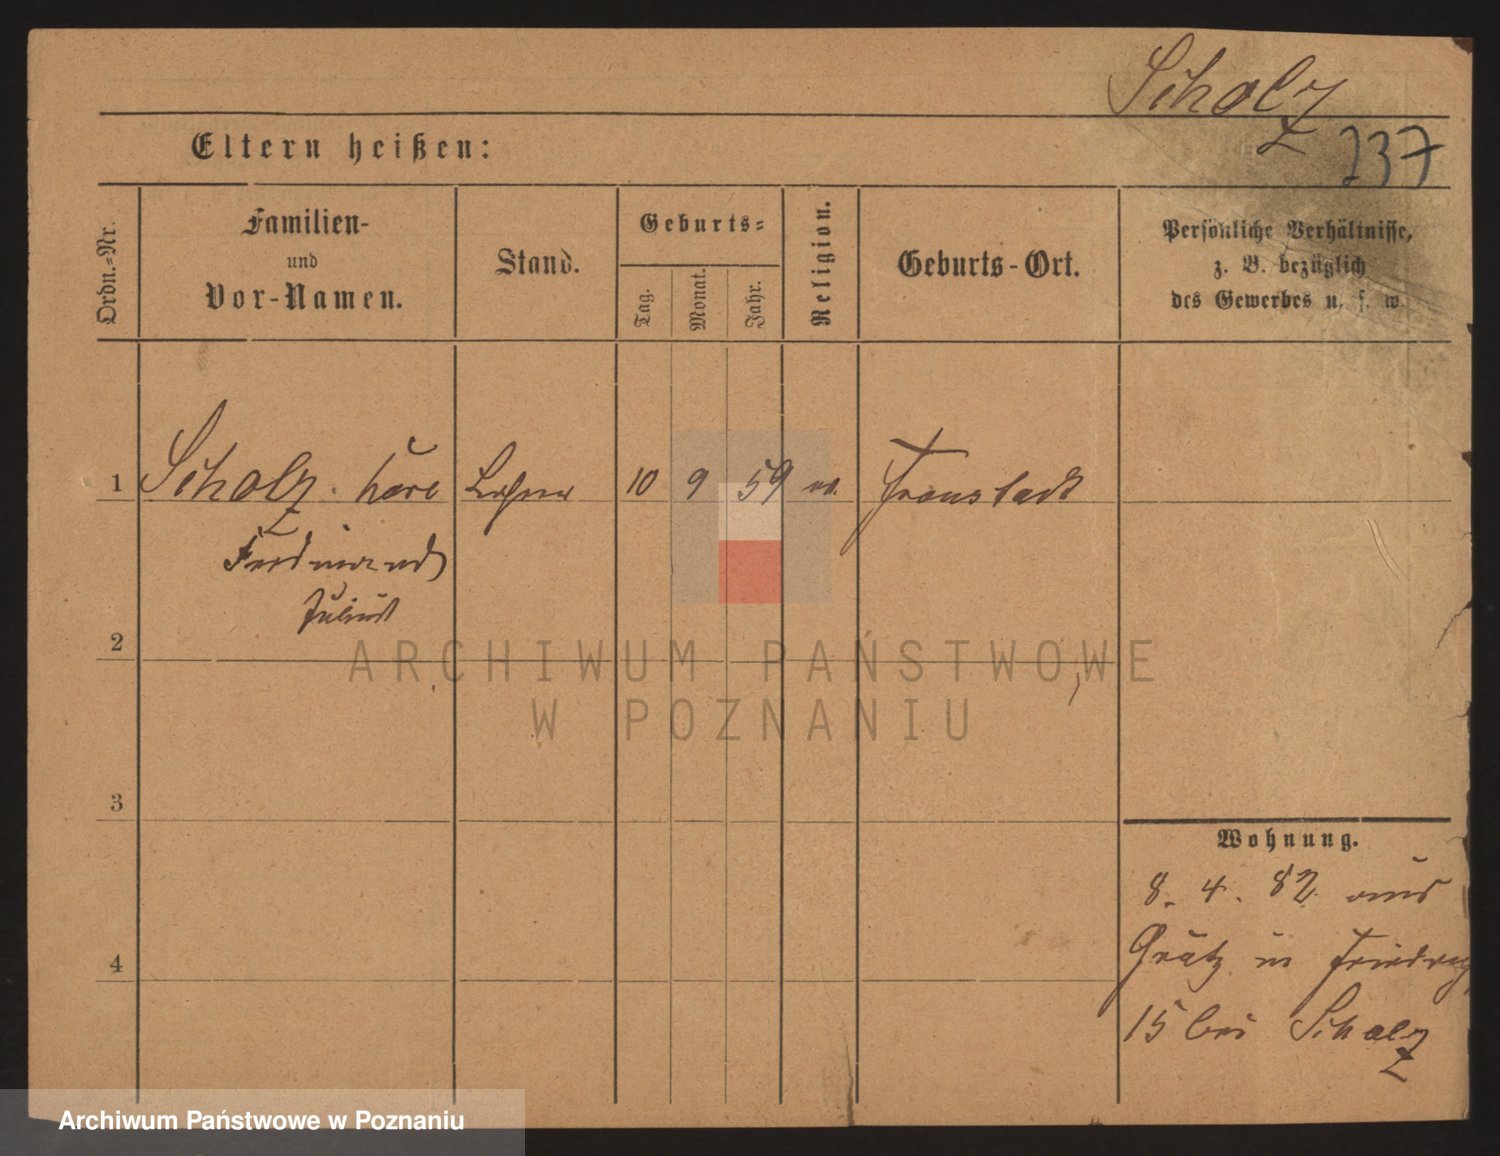 Scholz
237
Eltern heißen:
Ordn.-Nr.
Familien-
und
Vor-Namen.
Stand.
Geburts-
Tag.
Monat.
Jahr.
Religion.
Geburts-Ort.
Persönliche Verhältnisse,
z. B. bezüglich
des Gewerbes u. s. w.
1 Scholz 10 9 59 Fraustadt
Ferdinand
Julius
2
ARCHIWUM PAŃSTWOWE
W POZNANIU
3
Wohnung.
8. 4. 82 aus
Grätz in
4
15 bei Scholz
Archiwum Państwowe w Poznaniu